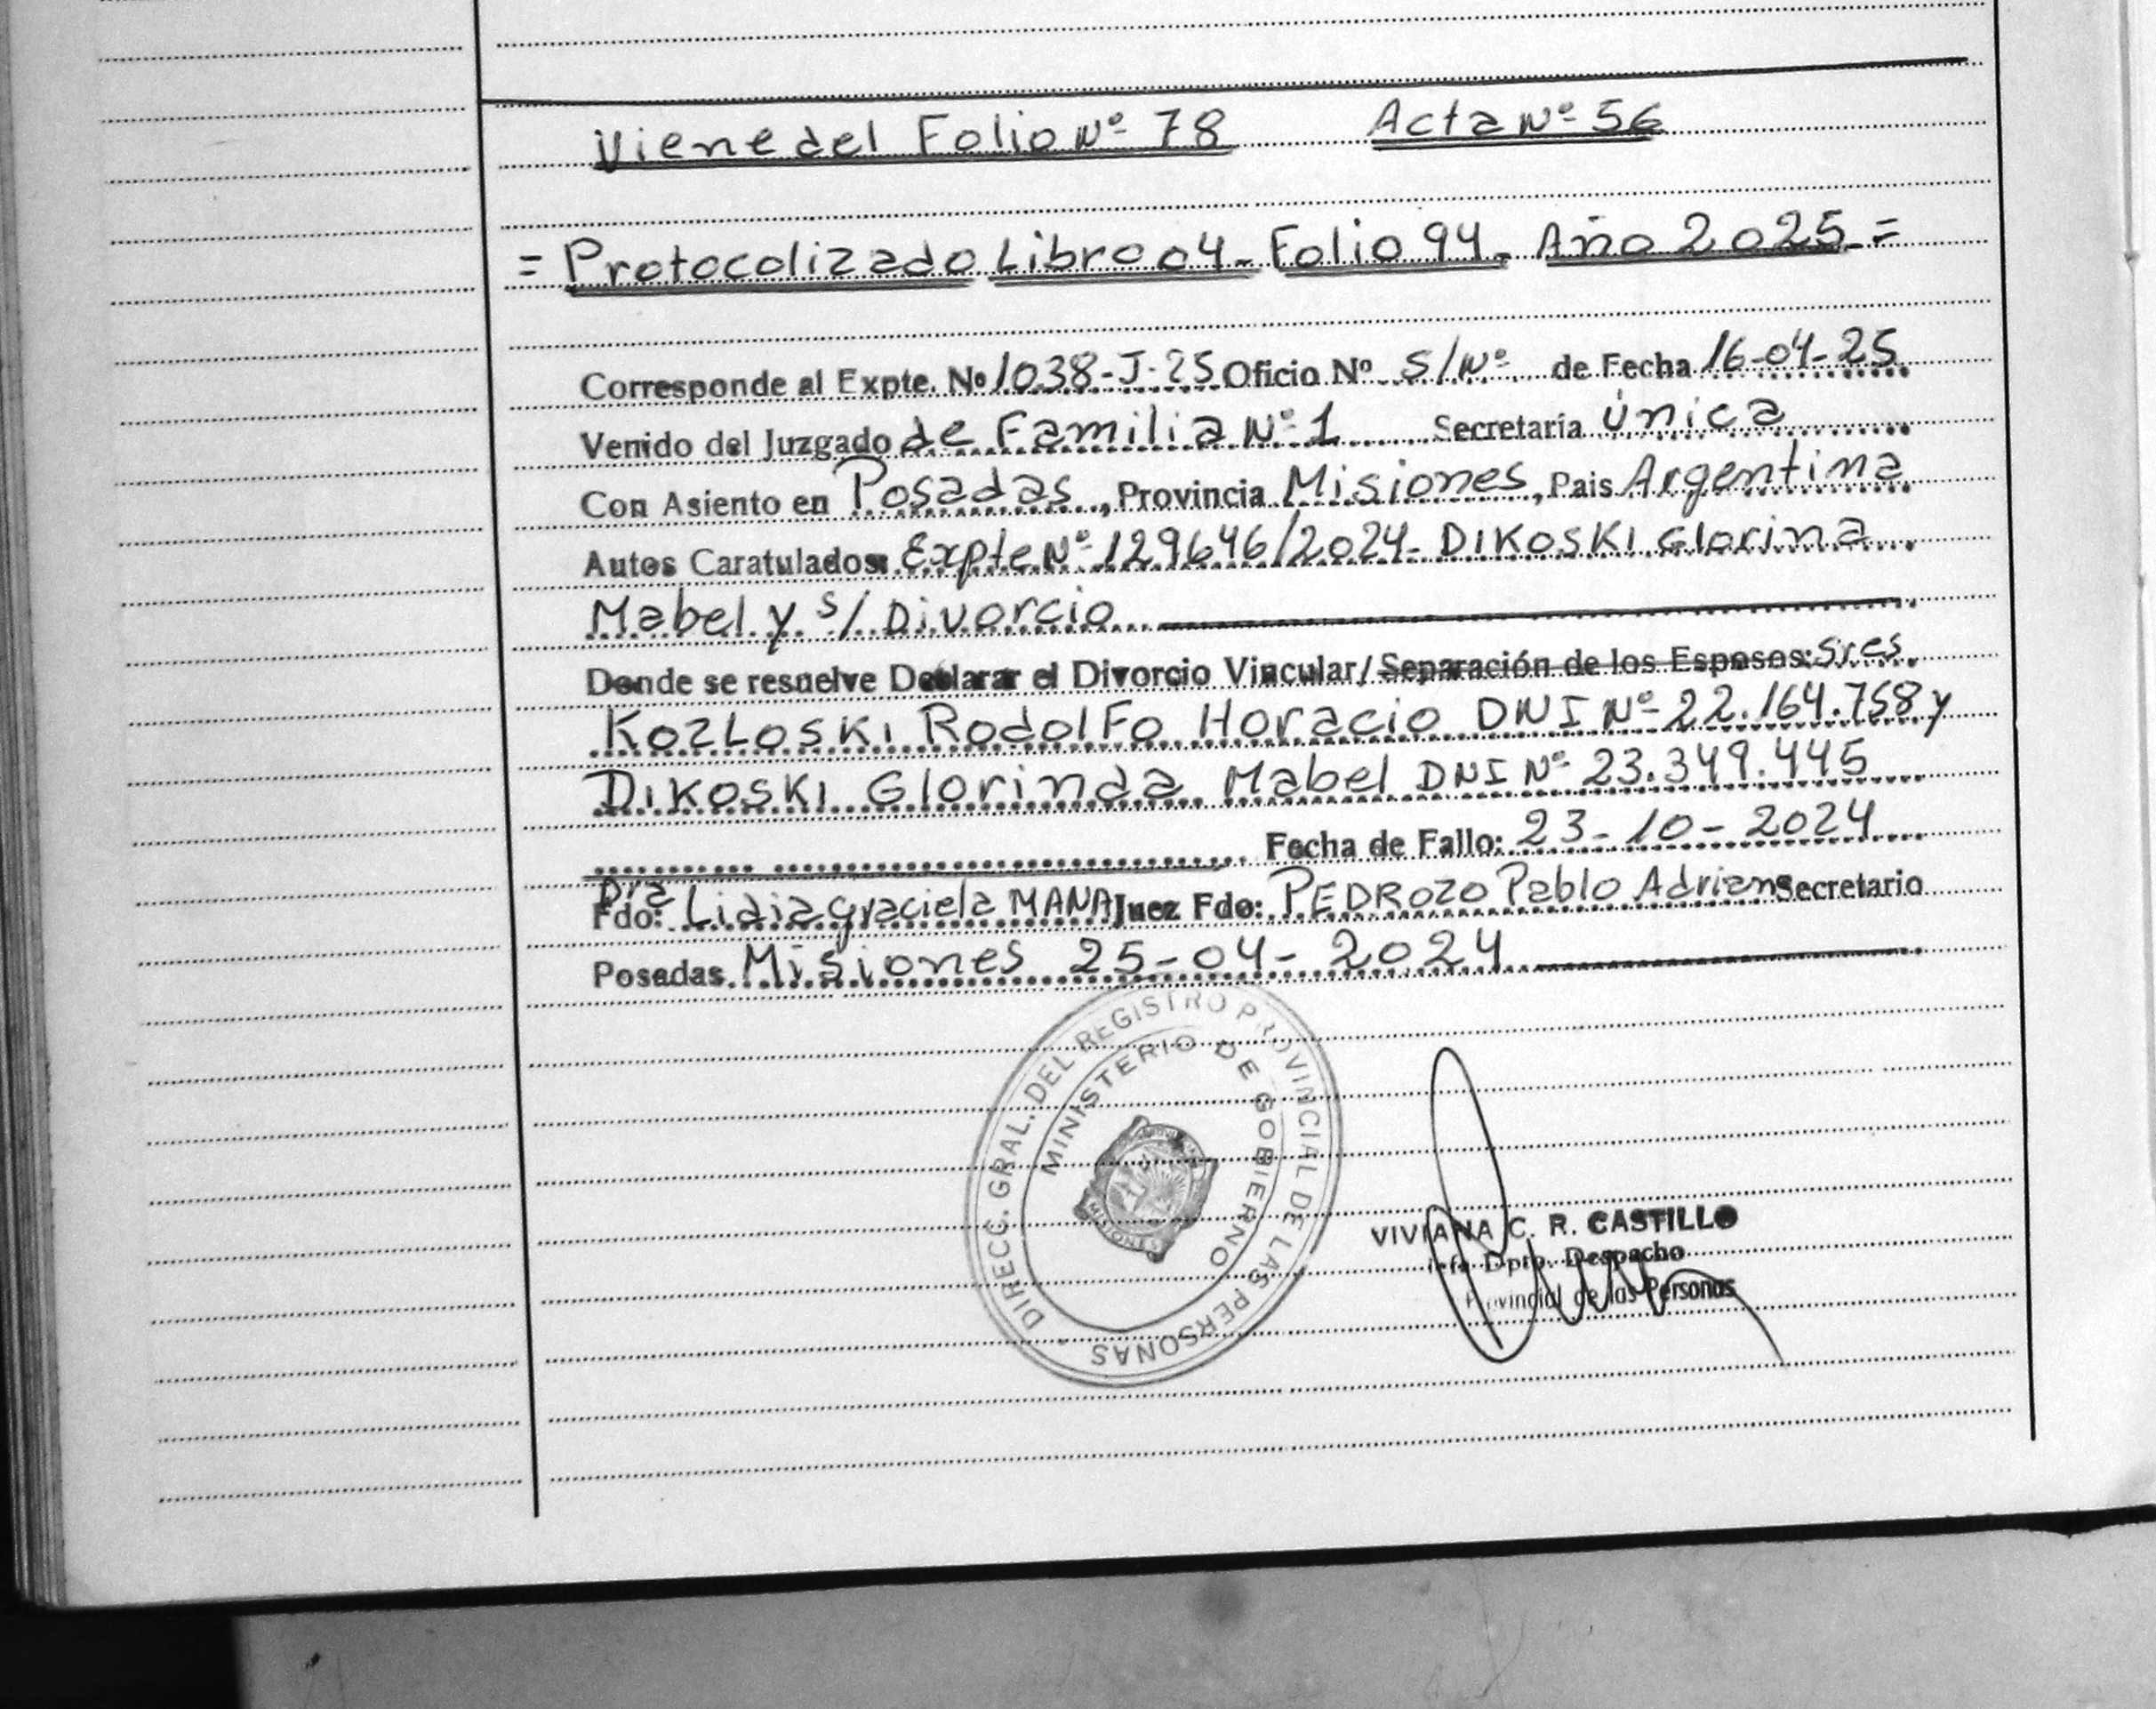 Viene del Folio Nº 78 Acta Nº 56
= Protocolizado Libro 04 - Folio 94 - Año 2025 =
Corresponde al Expte. Nº 1038-J-25 Oficio Nº S/Nº de Fecha 16-04-25
Venido del Juzgado de Familia Nº 1 Secretaría única
Con Asiento en Posadas, Provincia Misiones, Pais Argentina
Autos Caratulados: Expte Nº 129646/2024 - DIKOSKI Glorina
Mabel y s/ Divorcio
Donde se resuelve Declarar el Divorcio Vincular/ Separación de los Esposos: Sres.
KOZLOSKI Rodolfo Horacio DNI Nº 22.164.758 y
DIKOSKI Glorinda Mabel DNI Nº 23.349.445
Fecha de Fallo: 23-10-2024
Fdo: Dra Lidia Graciela MANA Juez Fdo: PEDROZO Pablo Adrian Secretario
Posadas Misiones 25-04-2024
DIRECC. GRAL. DEL REGISTRO PROVINCIAL DE LAS PERSONAS
MINISTERIO DE GOBIERNO
MISIONES
VIVIANA C. R. CASTILLO
Jefe Dpto. Despacho
Provincial de las Personas